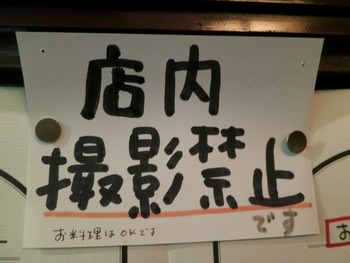 店内
撮影禁止
です
お料理はOKです
お